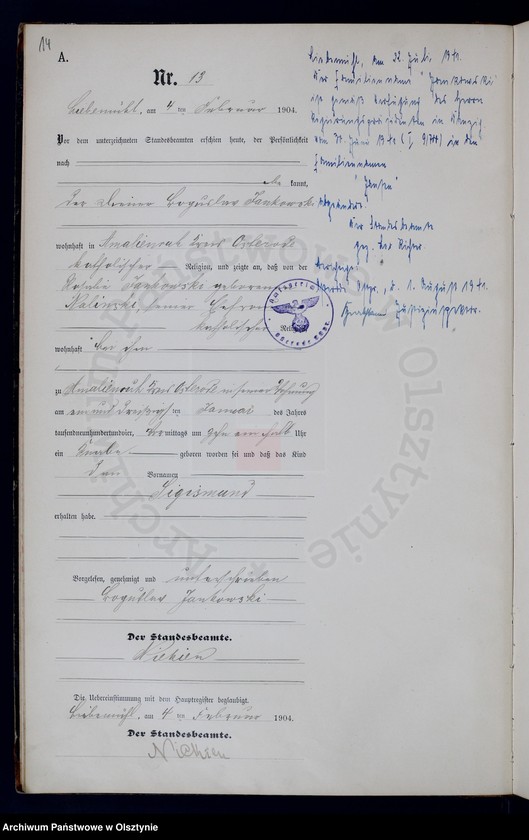 14
A.
Nr. 13
Liebemühl, am 4 ten Februar 1904.
Vor dem unterzeichneten Standesbeamten erschien heute, der Persönlichkeit
nach
kannt,
der Boguslav Jankowski
wohnhaft in Amalienruh Kreis Osterode
katholischer Religion, und zeigte an, daß von der
Rosalie Jankowski geborenen
Kalinski, seiner Ehefrau
katholischer Religion
wohnhaft bei ihm
zu Amalienruh Kreis Osterode in seiner Wohnung
am ein und dreißigsten Januar des Jahres
tausendneunhundertundvier, Vormittags um zehn ein halb Uhr
ein Knabe geboren worden sei und daß das Kind
den Vornamen
Sigismund
erhalten habe.
Vorgelesen, genehmigt und unterschrieben
Boguslav Jankowski
Der Standesbeamte.
Die Uebereinstimmung mit dem Hauptregister beglaubigt.
Liebemühl, am 4 ten Februar 1904.
Der Standesbeamte.
Liebemühl, am 22. Juli 1941.
Der Familienname "Jankowski"
ist gemäß Verfügung des Herrn
Regierungspräsidenten in
am Juni 1941 in den
Familiennamen
geändert.
Der Standesbeamte
gez. Richter
d. 1. August 1941.
Justizinspektor.
Archiwum Państwowe w Olsztynie
Archiwum Państwowe w Olsztynie